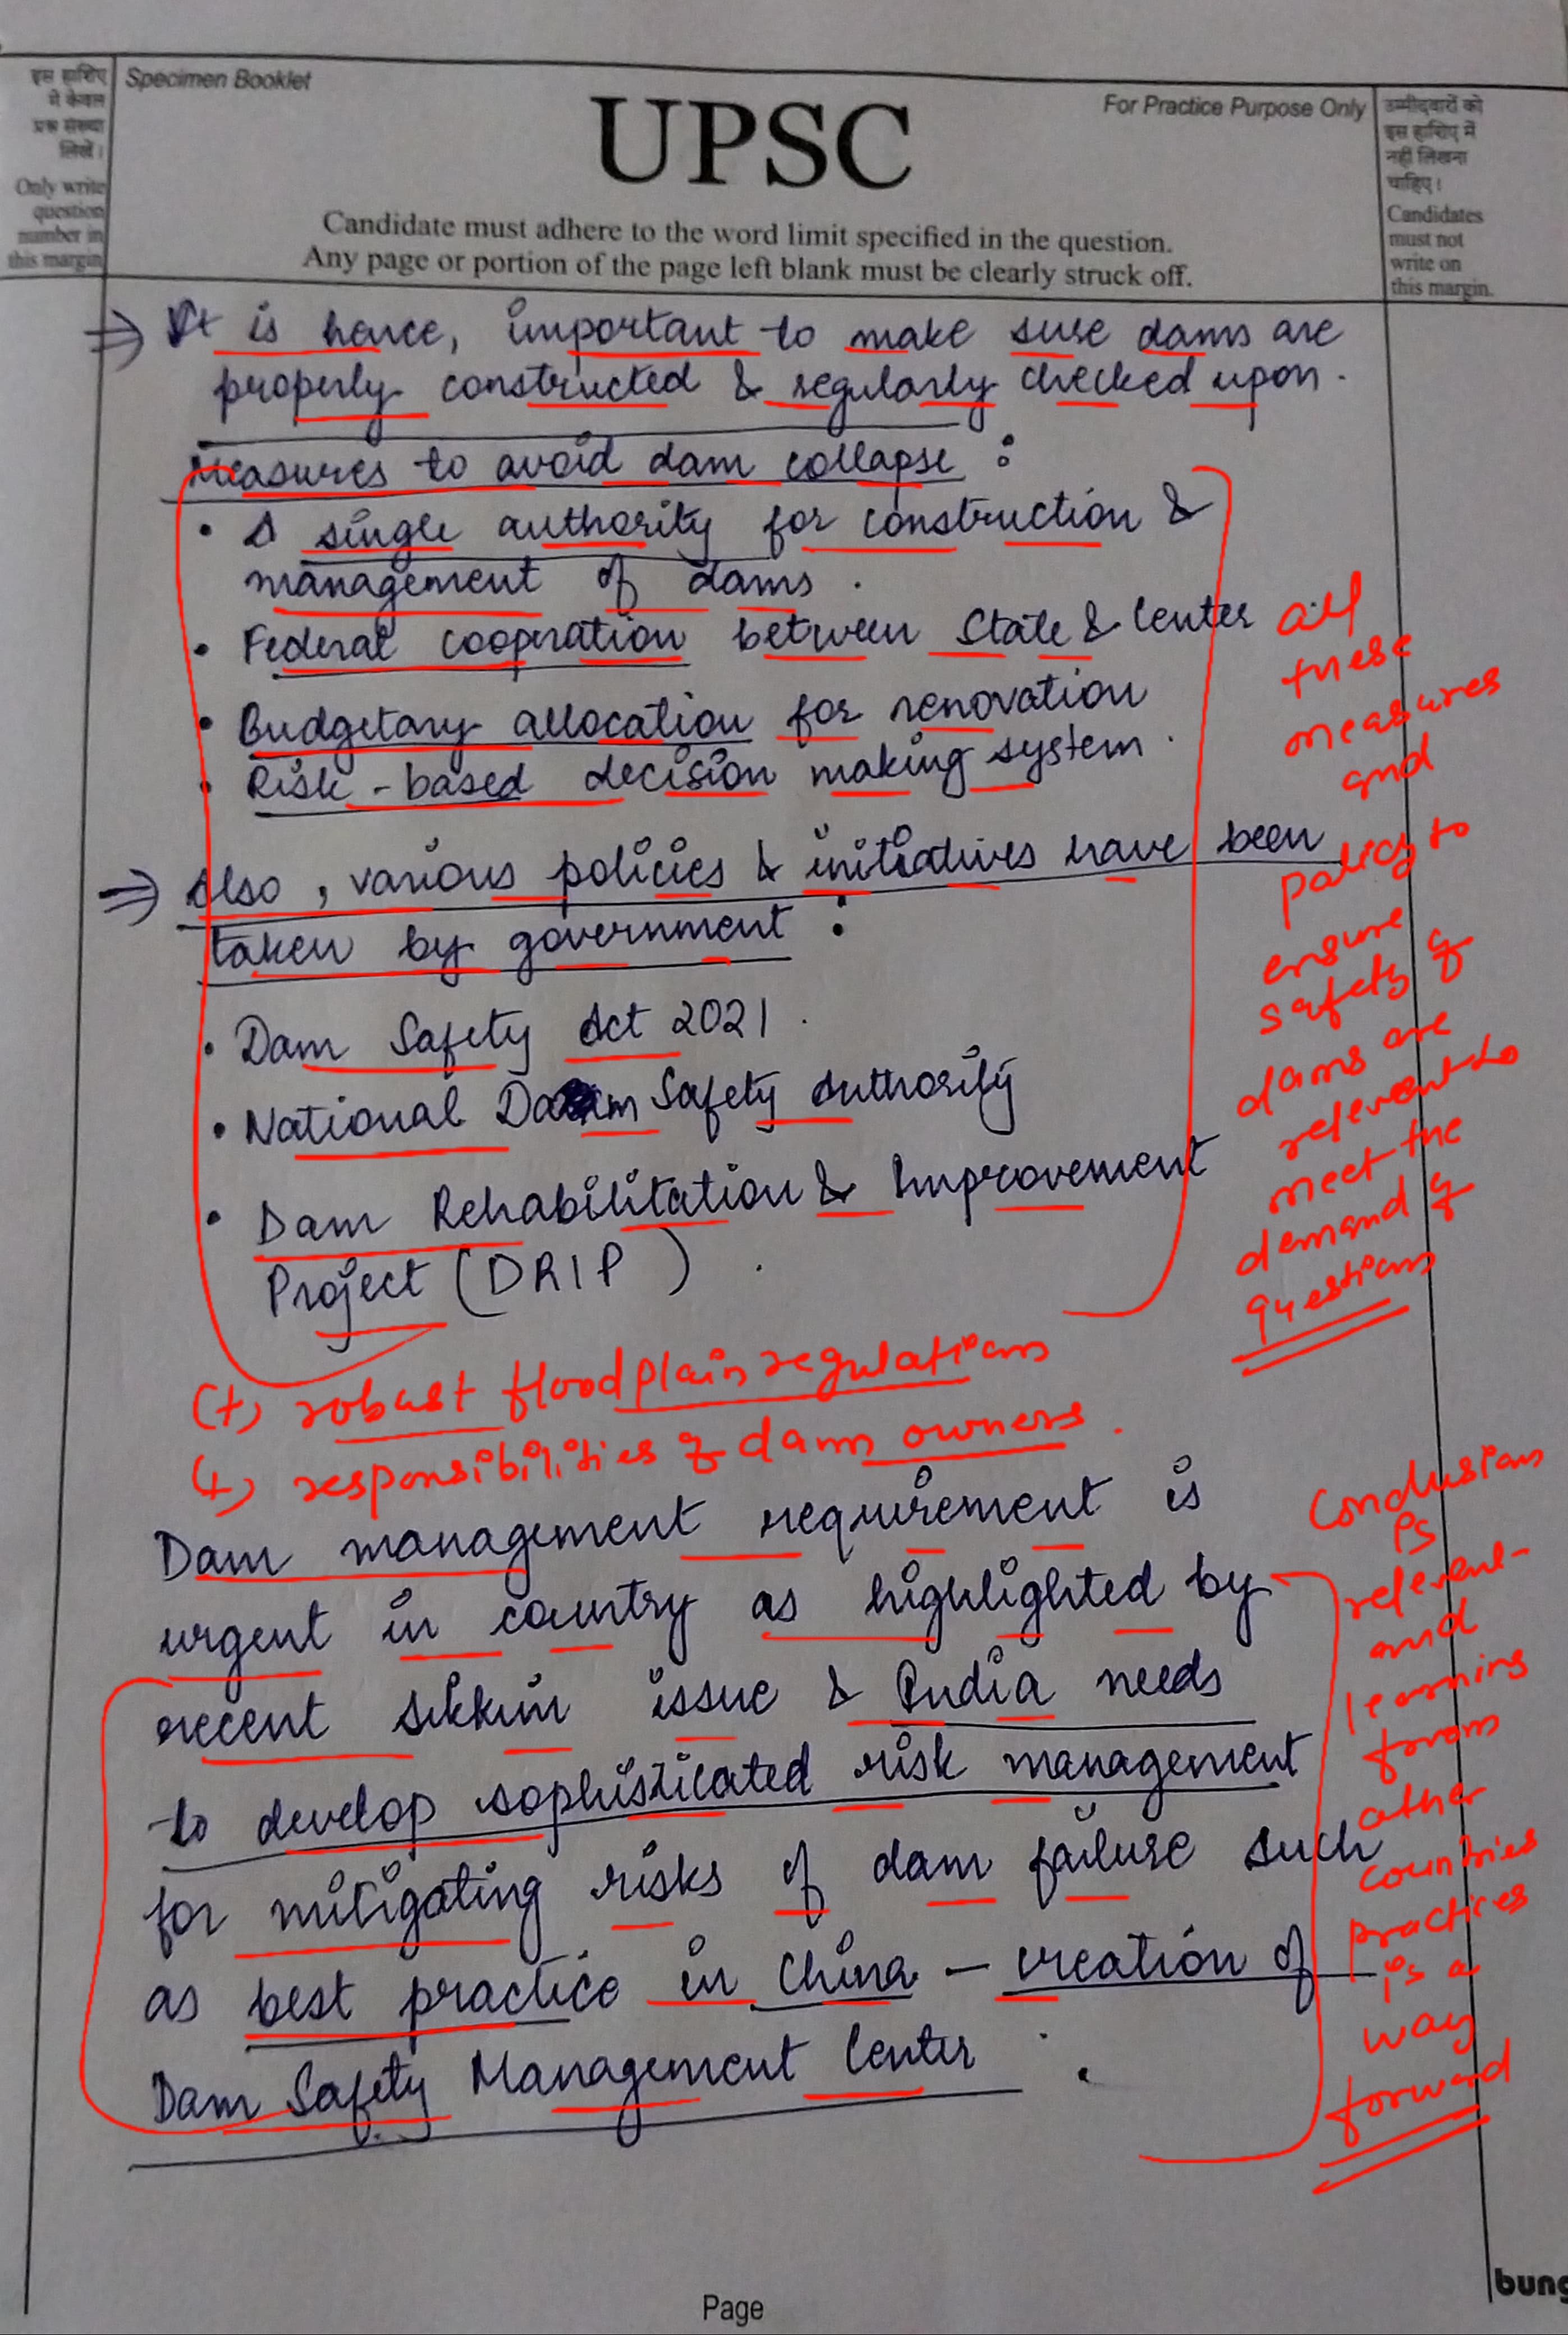 इस हाशिए
में केवल
प्रश्न संख्या
लिखें।
Only write
question
number in
this margin
Specimen Booklet
UPSC
For Practice Purpose Only
Candidate must adhere to the word limit specified in the question.
Any page or portion of the page left blank must be clearly struck off.
उम्मीदवारों को
इस हाशिए में
नहीं लिखना
चाहिए।
Candidates
must not
write on
this margin.
⇒ It is hence, important to make sure dams are
properly constructed & regularly checked upon.
Measures to avoid dam collapse :
• A single authority for construction &
management of dams.
• Federal cooperation between State & Center
• Budgetary allocation for renovation
• Risk-based decision making system.
⇒ Also, various policies & initiatives have been
taken by government :
• Dam Safety Act 2021.
• National Dam Safety Authority
• Dam Rehabilitation & Improvement
Project (DRIP).
all
these
measures
and
policy to
ensure
safety of
dams are
relevent to
meet the
demand of
questions
(+) robust flood plain regulations
(+) responsibilities of dam owners.
Dam management requirement is
urgent in country as highlighted by
recent Sikkim issue & India needs
to develop sophisticated risk management
for mitigating risks of dam failure such
as best practice in China – creation of
Dam Safety Management Center.
Conclusion
is
relevent
and
learning
from
other
countries
practices
is a
way
forward
Page
bung